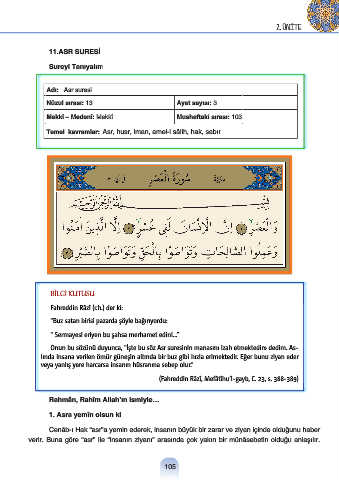 2. ÜNİTE
11.ASR SURESİ
Sureyi Tanıyalım
Adı: Asr suresi
Nüzul sırası: 13
Ayet sayısı: 3
Mekkî – Medenî: Mekkî
Mushaftaki sırası: 103
Temel kavramlar: Asr, husr, iman, amel-i sâlih, hak, sabır
سُورَةُ الْعَصْرِ
وَالْعَصْرِ ﴿١﴾ اِنَّ الْاِنْسَانَ لَفٖى خُسْرٍ ﴿٢﴾ اِلَّا الَّذٖينَ اٰمَنُوا
وَعَمِلُوا الصَّالِحَاتِ وَتَوَاصَوْا بِالْحَقِّ وَتَوَاصَوْا بِالصَّبْرِ ﴿٣﴾
BİLGİ KUTUSU
Fahreddin Râzî (ch.) der ki:
"Buz satan birisi pazarda şöyle bağırıyordu:
" Sermayesi eriyen bu şahsa merhamet edin!..."
Onun bu sözünü duyunca, "İşte bu söz Asr suresinin manasını izah etmektedir» dedim. As-
lında insana verilen ömür güneşin altında bir buz gibi hızla erimektedir. Eğer bunu ziyan eder
veya yanlış yere harcarsa insanın hüsranına sebep olur."
(Fahreddin Râzî, Mefâtîhu'l-gayb, C. 23, s. 388-389)
Rehmân, Rahîm Allah'ın ismiyle…
1. Asra yemin olsun ki
Cenâb-ı Hak "asr"a yemin ederek, insanın büyük bir zarar ve ziyan içinde olduğunu haber
verir. Buna göre "asr" ile "insanın ziyanı" arasında çok yakın bir münâsebetin olduğu anlaşılır.
105